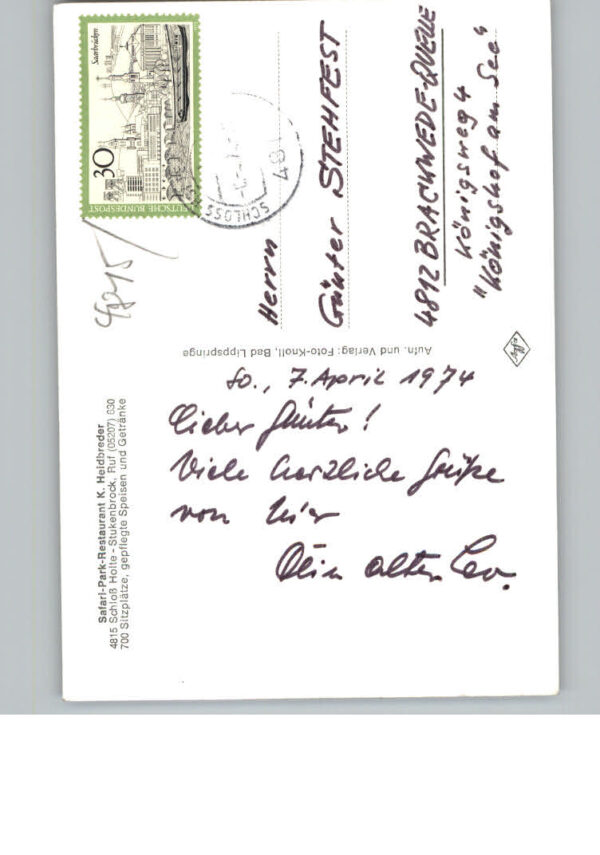 Safari-Park-Restaurant K. Heidbreder
4815 Schloß Holte - Stukenbrock, Ruf (05207) 630
700 Sitzplätze, gepflegte Speisen und Getränke
So., 7. April 1974
Lieber Günter!
Viele herzliche Grüße
von hier
Dein alter Leo.
Aufn. und Verlag: Foto-Knoll, Bad Lippspringe
4815
Saarbrücken
30
DEUTSCHE BUNDESPOST
SCHLOSS
481
Herrn
Günter STEHFEST
4812 BRACKWEDE-QUELLE
Königsweg 4
"Königshof am See"